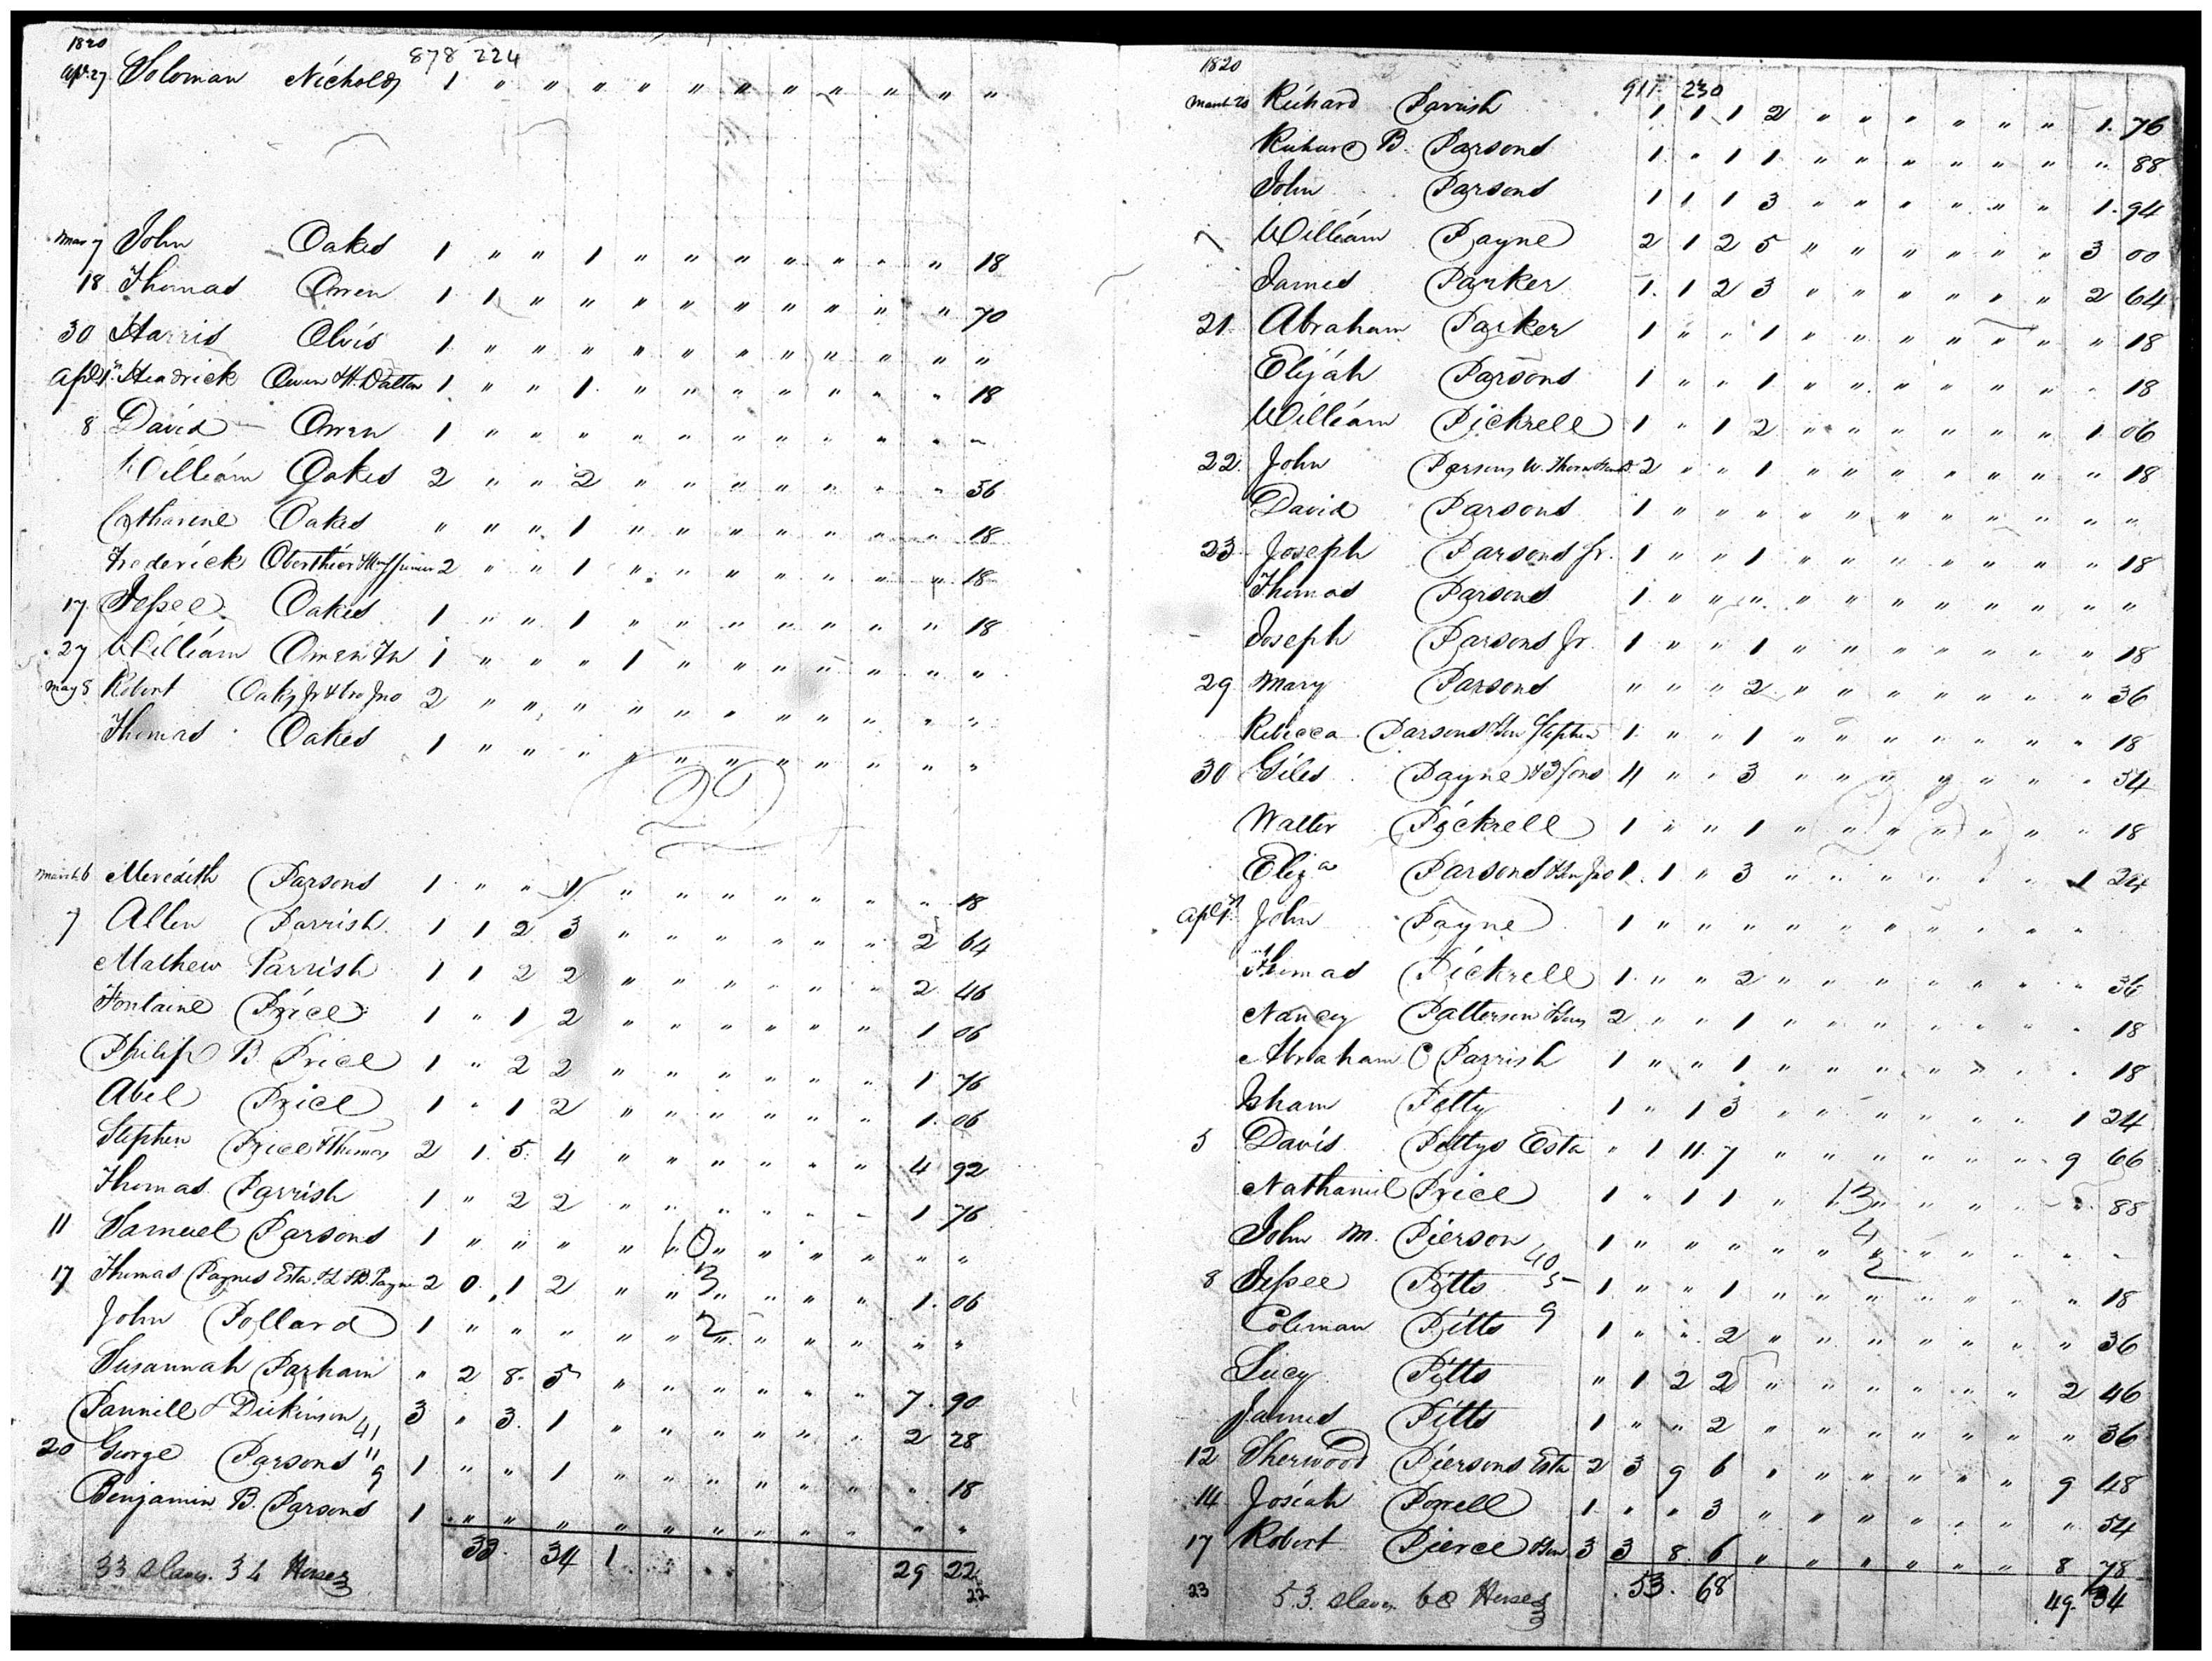 1820
878 224
Apl. 27 Soloman Nicholds 1 " " " " " " " " " " "
May 7 John Oakes 1 " " 1 " " " " " " " 18
18 Thomas Owen 1 1 " " " " " " " " " 70
30 Harris Olvis 1 " " " " " " " " " " "
Apl 1st Hendrick Owen & H. Dalton 1 " " 1 " " " " " " " 18
8 David Owen 1 " " " " " " " " " " "
William Oakes 2 " " 2 " " " " " " " 36
Catharine Oakes " " " 1 " " " " " " " 18
Frederick Oberthier 2 " " 1 " " " " " " " 18
17 Jessee Oakes 1 " " 1 " " " " " " " 18
27 William Owen 1 " " " 1 " " " " " " "
May 5 Robert Oakes Jr & bro Jno 2 " " " " " " " " " " "
Thomas Oakes 1 " " " " " " " " " " "
22
March 6 Meredith Parsons 1 " " 1 " " " " " " " 18
7 Allen Parrish 1 1 2 3 " " " " " " 2 64
Mathew Parrish 1 1 2 2 " " " " " " 2 46
Fontaine Price 1 " 1 2 " " " " " " 1 06
Philip B. Price 1 " 2 2 " " " " " " 1 76
Abel Price 1 " 1 2 " " " " " " 1. 06
Stephen Price & Thomas 2 1 5 4 " " " " " " 4 92
Thomas Parrish 1 " 2 2 " " " " " " 1 76
11 Samuel Parsons 1 " " " " " " " " " " "
17 Thomas Paynes Esta. 2 0 1 2 " " " " " " 1. 06
John Pollard 1 " " " " " " " " " " "
Susannah Parham " 2 8 5 " " " " " " 7. 90
Pannill & Dickinson 3 " 3. 1 " " " " " " 2 28
20 George Parsons 1 " " 1 " " " " " " " 18
Benjamin B. Parsons 1 " " " " " " " " " " "
33. 34 1 29 22
33 slaves. 34 Horses
22
1820
911 230
March 20 Richard Parrish 1 1 1 2 " " " " " " 1. 76
Richard B. Parsons 1 " 1 1 " " " " " " " 88
John Parsons 1 1 1 3 " " " " " " 1. 94
William Payne 2 1 2 5 " " " " " " 3 00
James Parker 1. 1 2 3 " " " " " " 2 64
21 Abraham Parker 1 " " 1 " " " " " " " 18
Elijah Parsons 1 " " 1 " " " " " " " 18
William Pickrell 1 " 1 2 " " " " " " 1 06
22. John Parsons 2 " " 1 " " " " " " " 18
David Parsons 1 " " " " " " " " " " "
23 Joseph Parsons Jr. 1 " " 1 " " " " " " " 18
Thomas Parsons 1 " " " " " " " " " " "
Joseph Parsons Jr 1 " " 1 " " " " " " " 18
29 Mary Parsons " " " 2 " " " " " " " 36
Rebecca Parsons & son Stephen 1 " " 1 " " " " " " " 18
30 Giles Payne & 3 sons 4 " " 3 " " " " " " " 54
Walter Pickrell 1 " " 1 " " " " " " " 18
Eliza Parsons & son Jno 1. 1 " 3 " " " " " " 1 24
Apl 1st John Payne 1 " " " " " " " " " "
Thomas Pickrell 1 " " 2 " " " " " " " 36
Nancy Patterson & sons 2 " " 1 " " " " " " " 18
Abraham C Parrish 1 " " 1 " " " " " " " 18
Isham Petty 1 " 1 3 " " " " " " 1 24
5 Davis Pettys Esta " 1 11. 7 " " " " " " 9 66
Nathaniel Price 1 " 1 1 " " " " " " " 88
John M. Pierson 1 " " " " " " " " " " "
8 Jessee Pitts 1 " " 1 " " " " " " " 18
Coleman Pitts 1 " " 2 " " " " " " " 36
Lucy Pitts " 1 2 2 " " " " " " 2 46
James Pitts 1 " " 2 " " " " " " " 36
12 Sherwood Piersons Esta 2 3 9 6 " " " " " " 9 48
14 Josiah Powell 1 " " 3 " " " " " " " 54
17 Robert Pierce & son 3 3 8. 6 " " " " " " 8 78
53. 68 49. 34
23 53. slaves 68 Horses